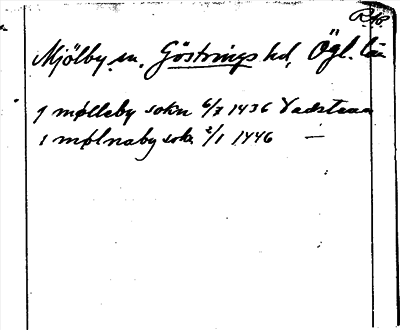 RAp.
Mjölby sn. Göstrings hd, Ögl. län
j mølleby sokn 6/7 1436 Vadstena
i mølnaby sokn 2/1 1446 —